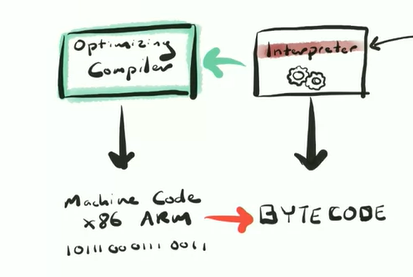 Optimizing
Compiler
Interpreter
Machine Code
x86 ARM
10111000111 0011
BYTECODE